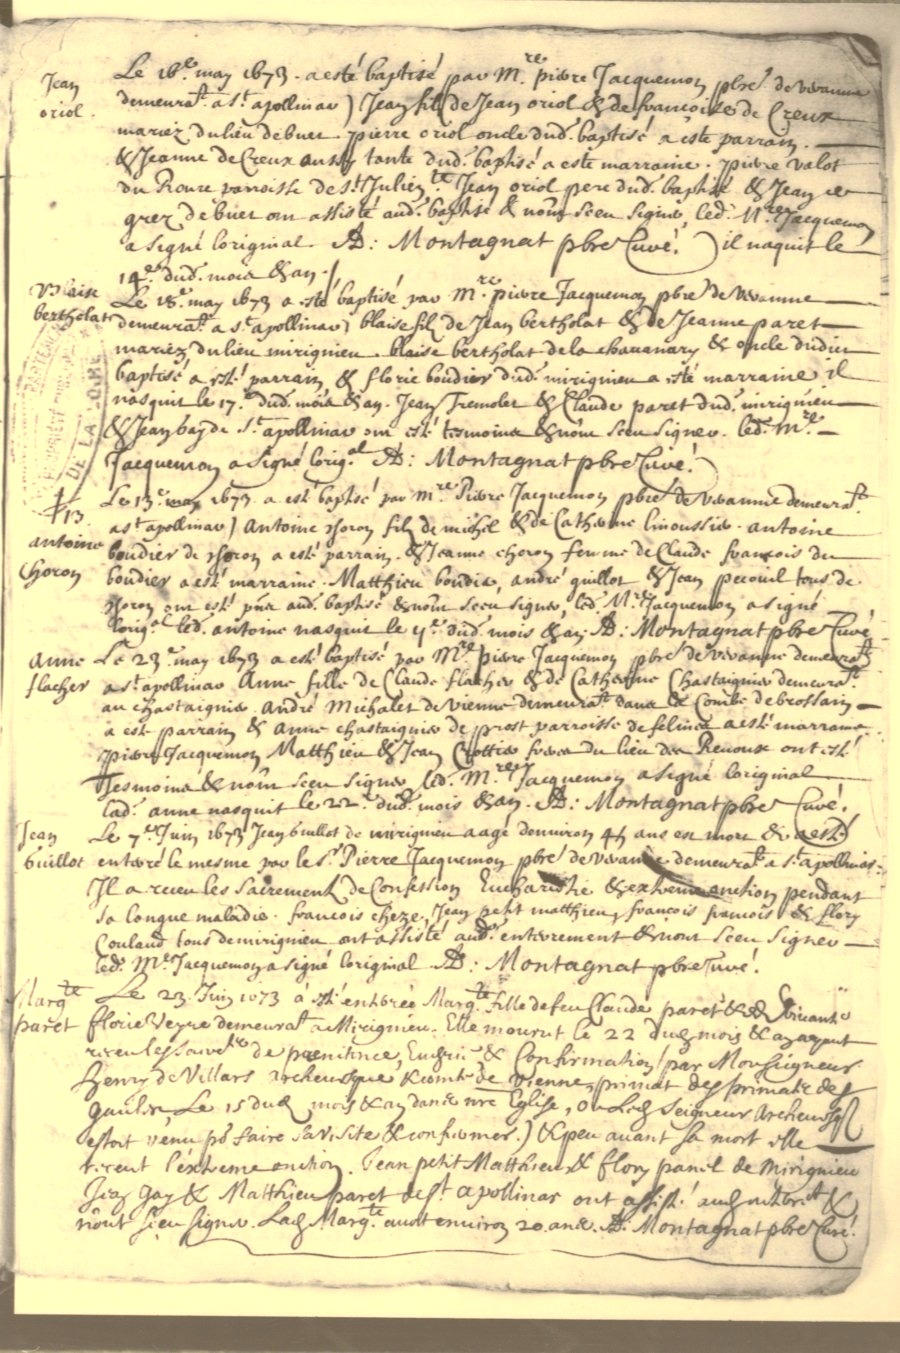 Jean
oriol.
Le 16.e may 1673. a esté baptisé par M.re pierre Jacquemon pbre de vivanne
demeurat a st apollinar) Jean fils de Jean oriol & de francoise de Creux
mariez du lieu de buer. pierre oriol oncle dud. baptisé a este parrain.
& Jeanne de Creux aussy tante dud. baptisé a este marraine. pierre valot
du Roure parroisse de st Julien. Jean oriol pere dud. baptisé & Jean
grez de buer ont assisté aud. baptisé & nont sceu signer led. M.re Jacquemon
a signé loriginal. A: Montagnat pbre Curé.) il naquit le
14.e dud. mois & an./
blaise
bertholat
Le 18.e may 1673 a esté baptisé par M.re pierre Jacquemon pbre de vivanne
demeurat a st apollinar) blaise fils de Jean bertholat & de Jeanne paret
mariez du lieu mirignieu. blaise bertholat de la chavanary & oncle dudit
baptisé a esté parrain, & florie boudier dud. mirignieu a esté marraine il
nasquit le 17.e dud. mois & an. Jean Tremolet & Claude paret dud. mirignieu
& Jean bay de st apollinar ont esté tesmoins & nont sceu signer. led. M.re
Jacquemon a signé lorig.al A: Montagnat pbre Curé.)
DE LA LOIRE
13.
antoine
choron
Le 13.e may 1673. a esté baptisé par m.re Pierre Jacquemon pbre de vivanne demeurat
a st apollinar) Antoine choron fils de michel & de Catherine limoussin. antoine
boudier de choron a esté parrain. & Jeanne choron femme de Claude francois du
boudier a esté marraine. Matthieu boudier, andré guillot & Jean pecouil tous de
choron ont esté pnts aud. baptisé & nont sceu signer, led. M.re Jacquemon a signé
lorig.al led. antoine nasquit le 4.e dud. mois & an; A: Montagnat pbre Curé
Anne
flacher
Le 23.e may 1673 a esté baptisé par M.re pierre Jacquemon pbre de vivanne demeurat
a st apollinar Anne fille de Claude flacher & de Catherine Chastaignier demeurat
au chastaignier. André Michalet de vienne demeurat dans la Combe de brossain
a esté parrain & anne chastaignier de prost parroisse de feline a esté marraine.
pierre Jacquemon Matthieu & Jean Crottier freres du lieu des Renoux ont esté
Tesmoins & nont sceu signer led. M.re Jacquemon a signé loriginal
lad. anne nasquit le 22.e dud. mois & an. A: Montagnat pbre Curé.
Jean
Guillot
Le 7.e Juin 1673 Jean Guillot de mirignieu aagé denviron 45 ans est mort & a esté
enterré le mesme par le sr Pierre Jacquemon pbre de vivanne demeurat a st apollinar.
Il a receu les sacrements de Confession Eucharistie & extreme onction pendant
sa longue maladie. francois cheze, Jean petit matthieu, francois francois & flory
Couland tous de mirignieu ont assisté aud. enterrement & nont sceu signer
led. M.re Jacquemon a signé loriginal A: Montagnat pbre Curé.
Marg.te
paret
Le 23. Juin 1673 a esté enterrée Marg.te fille de feu Claude paret & de vivante
florie Veyre demeurat a Mirignieu. Elle mourut le 22 dud. mois & an ayant
receu les sacre.ts de penitence, Euchie & Confirmation (par Monseigneur
Henry de Villars archevesque, & comte de Vienne, primat des primats des
Gaules Le 15 dud. mois & an dans nre Eglise, ou led. Seigneur Archevesq
estoit venu pr faire sa visite & confirmer.) & peu avant sa mort elle
receut l'extreme onction. Jean petit Matthieu & flory panel de Mirignieu
Jean Gay & Matthieu paret de st apollinar ont assisté aud. enterremt &
nont sceu signer. Lad. Marg.te avoit environ 20 ans. A: Montagnat pbre Curé.